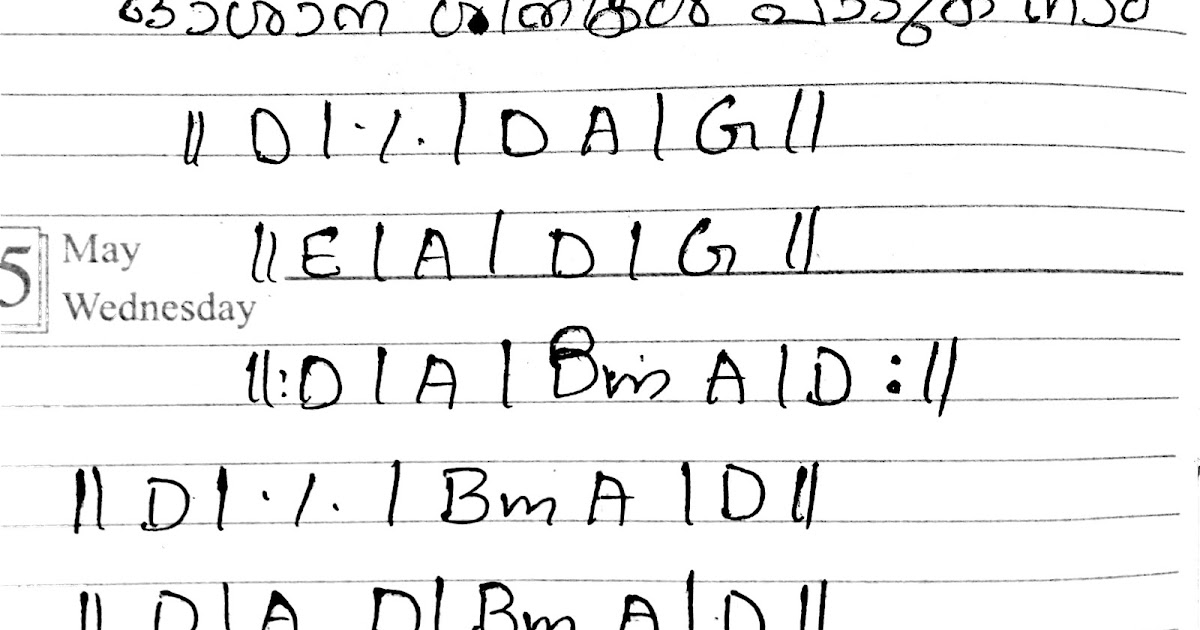 ഓശാന
|| D | ·/. | D A | G ||
5 May
|| E | A | D | G ||
Wednesday
||: D | A | Bm A | D :||
|| D | ·/. | Bm A | D ||
|| D | A D | Bm A | D ||